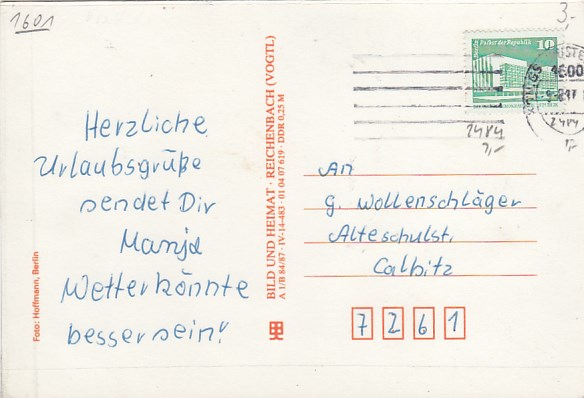 1601
3,-
Herzliche
Urlaubsgrüße
sendet Dir
Manja
Wetter könnte
besser sein!
Foto: Hoffmann, Berlin
BILD UND HEIMAT · REICHENBACH (VOGTL)
A 1/B 84/87 · IV-14-483 · 01 04 07 619 · DDR 0,25 M
Palast der Republik
10
2484
An
G. Wollenschläger
Alteschulst.
Calbitz
7261